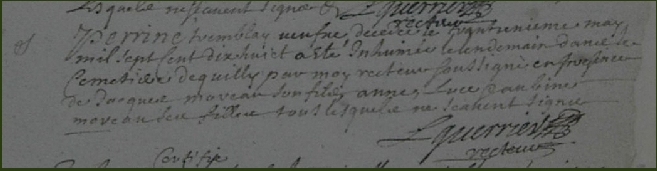 Lesquels ne scavent signe
Lguerrier
recteur
Perrine tremblay veufve decedee le trantenieme may
mil sept cent dix huict a esté Inhumée le lendemain dans le
Cemetiere de quilly par moy recteur soussigné en presence
de Jacques moreau son fils, anne, Luce Jaubine
moreau ses filles tous lesquels ne scavent signe
Lguerrier
recteur
Certifie